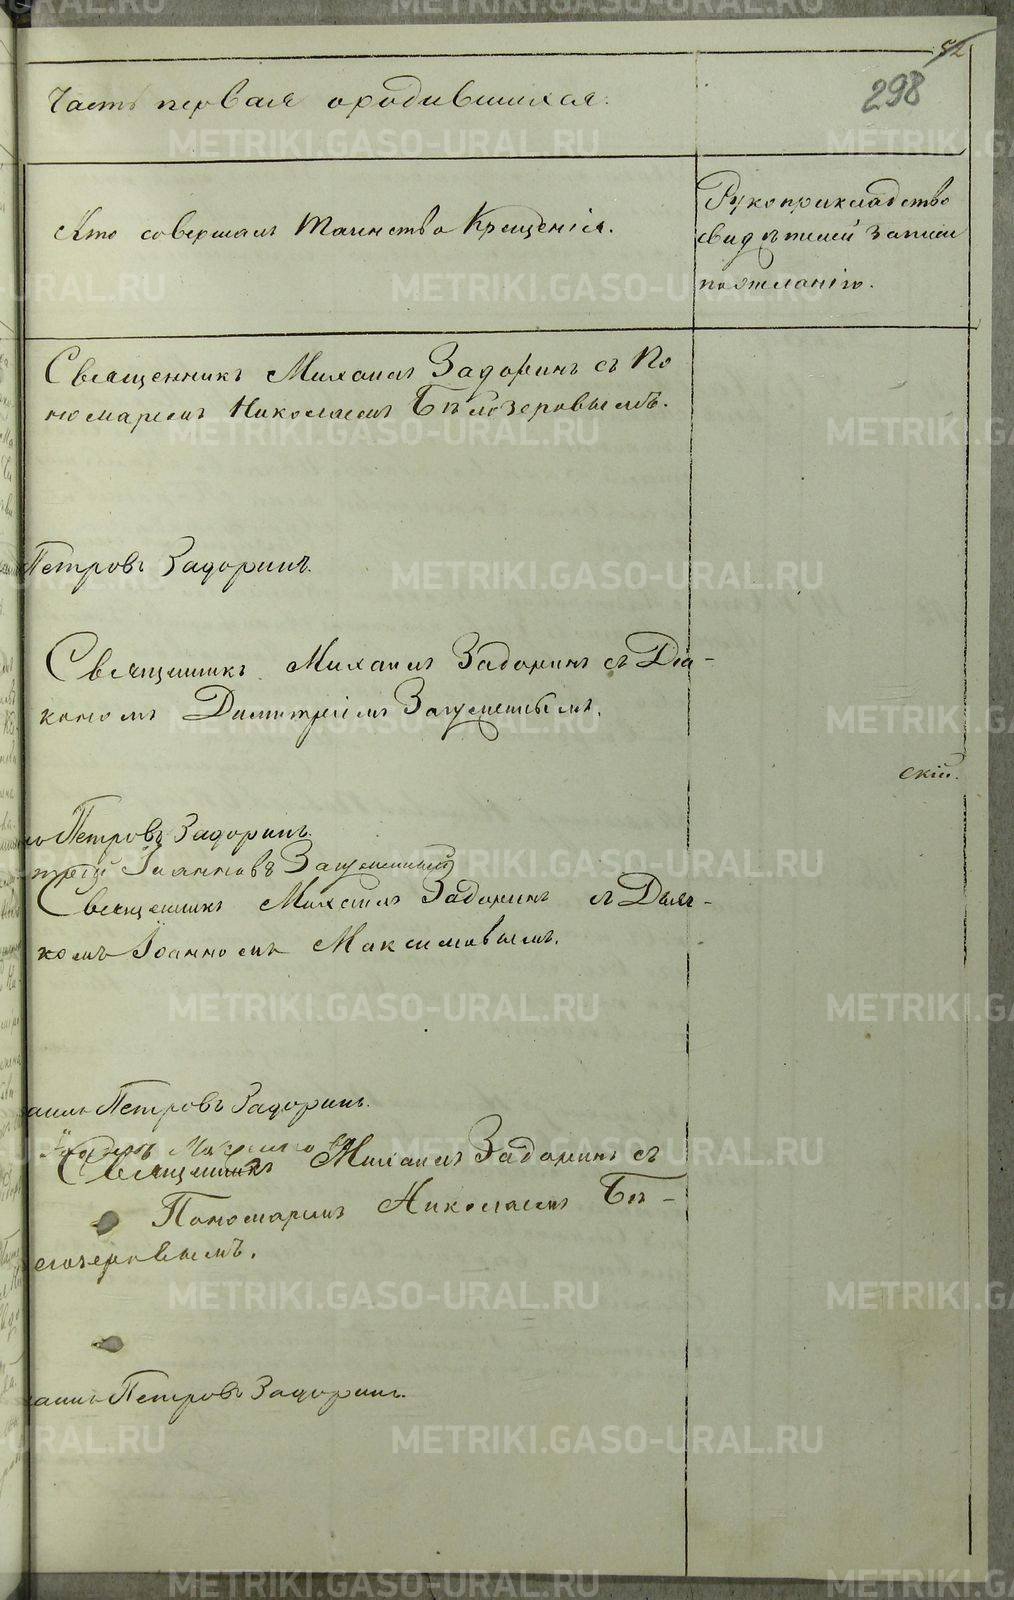 52
298
Часть первая о родившихся.
Кто совершалъ Таинство Крещенія.
Рукоприкладство
свидѣтелей записи
по желанію.
Священникъ Михаилъ Задоринъ съ По
номаремъ Николаемъ Бѣлозеровымъ.
Петровъ Задоринъ.
Священникъ Михаилъ Задоринъ съ Діа-
кономъ Димитріемъ Загуменнымъ.
скій.
Петровъ Задоринъ.
Іоанновъ Загуменный
Священникъ Михаилъ Задоринъ съ Дьяч-
комъ Іоанномъ Максимовымъ.
аилъ Петровъ Задоринъ.
Священникъ Михаилъ Задоринъ съ
Пономаремъ Николаемъ Бѣ-
лозеровымъ.
аилъ Петровъ Задоринъ.
METRIKI.GASO-URAL.RU